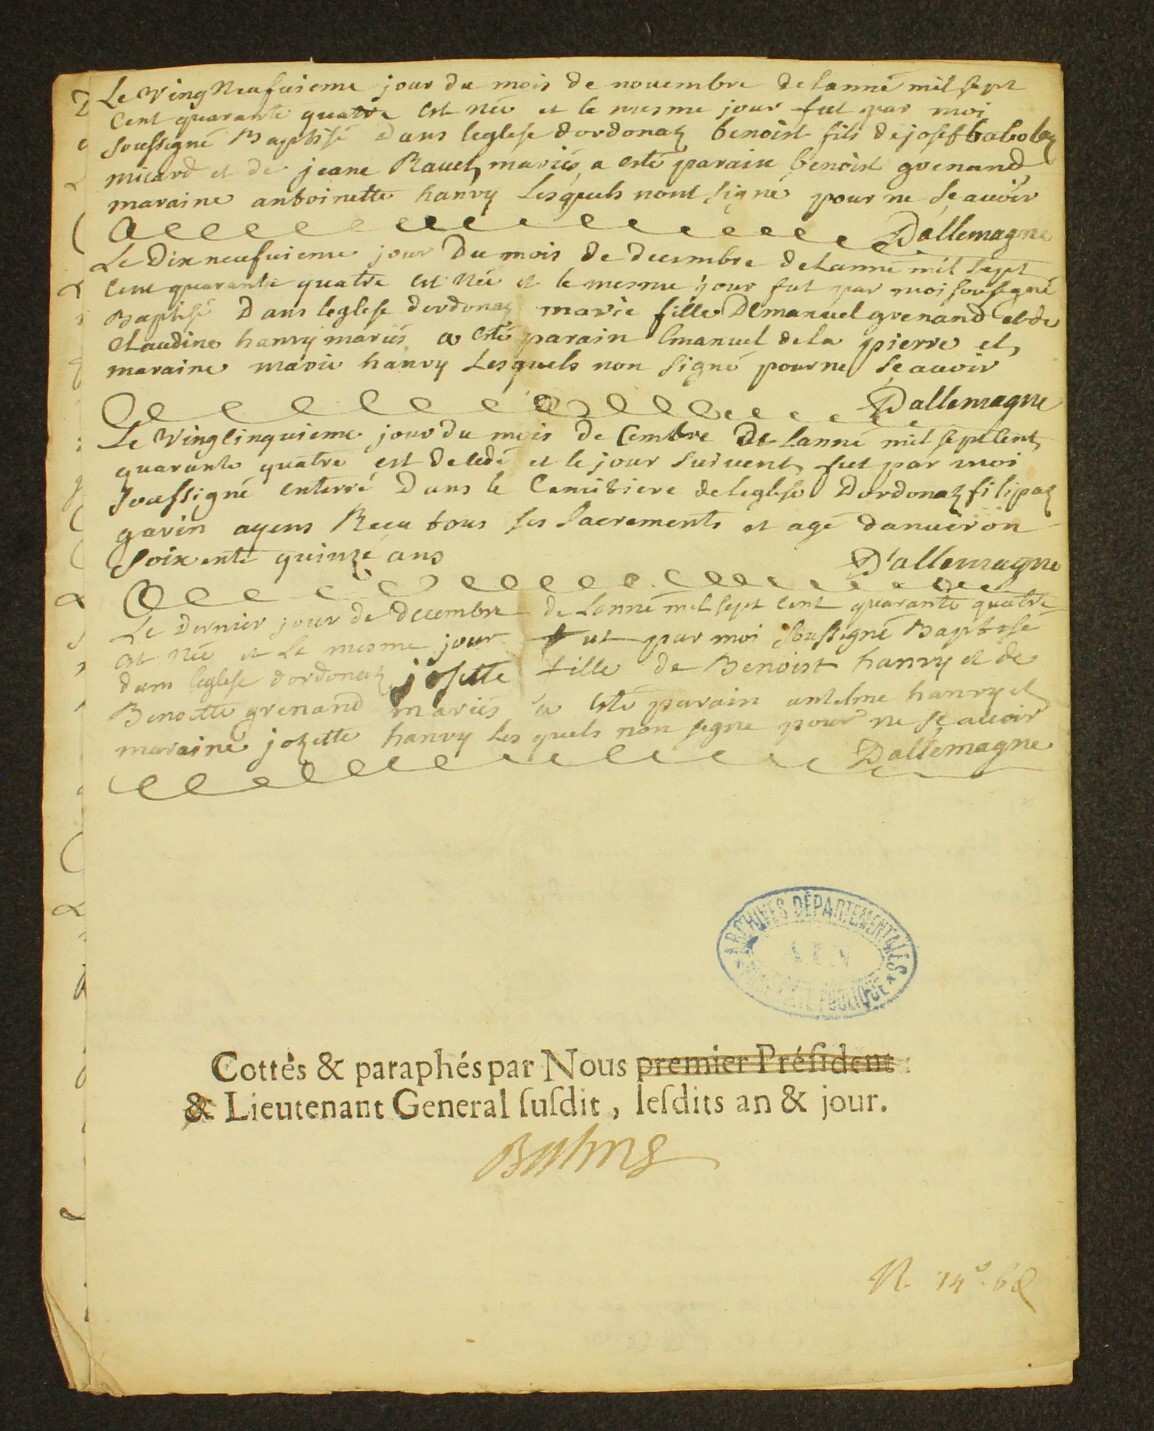 Le Vingneufuieme jour du mois de nouembre de lanné mil sept
Cent quarante quatre est née et le mesme jour fut par moi
soussigné Baptisé dans leglese dordonaz benoist fils de josef bobolez
micard et de jeane Ravet mariés a esté parain benoist grenand
maraine antoinette hanry Lesquels nont signé pour ne sçauoir
Dallemagne
Le Dixneufuieme jour Du mois de decembre de Lanné mil sept
Cent quarante quatre est née et le mesme jour fut par moi sousigné
Baptisé Dans leglese dordonaz marie fille Demanuel grenand et de
Claudine hanry mariés a esté parain Emanuel de la pierre et
maraine marie hanry Lesquels non signé pour ne sçauoir
Dallemagne
Le Vingcinquieme jour du mois de Cembre De lanné mil sept Cent
quarante quatre est decedé et le jour suivent fut par moi
soussigné enterré Dans le Cemitiere de leglese Dordonaz filipaz
gavin ayens Receu tous ses sacrements et agé danuiron
soixente quinze ans
D'allemagne
Le dernier jour de decembre de Lanné mil sept cent quarante quatre
est née et Le mesme jour fut par moi soussigné Baptisé
dans leglese dordonaz josette fille de Benoist hanry et de
Benoitte grenand mariés a esté parain antelme hanry et
maraine jozette hanry Lesquels non signe pour ne sçauoir
Dallemagne
ARCHIVES DÉPARTEMENTALES
Cottés & paraphés par Nous premier Préſident
& Lieutenant General ſuſdit, leſdits an & jour.